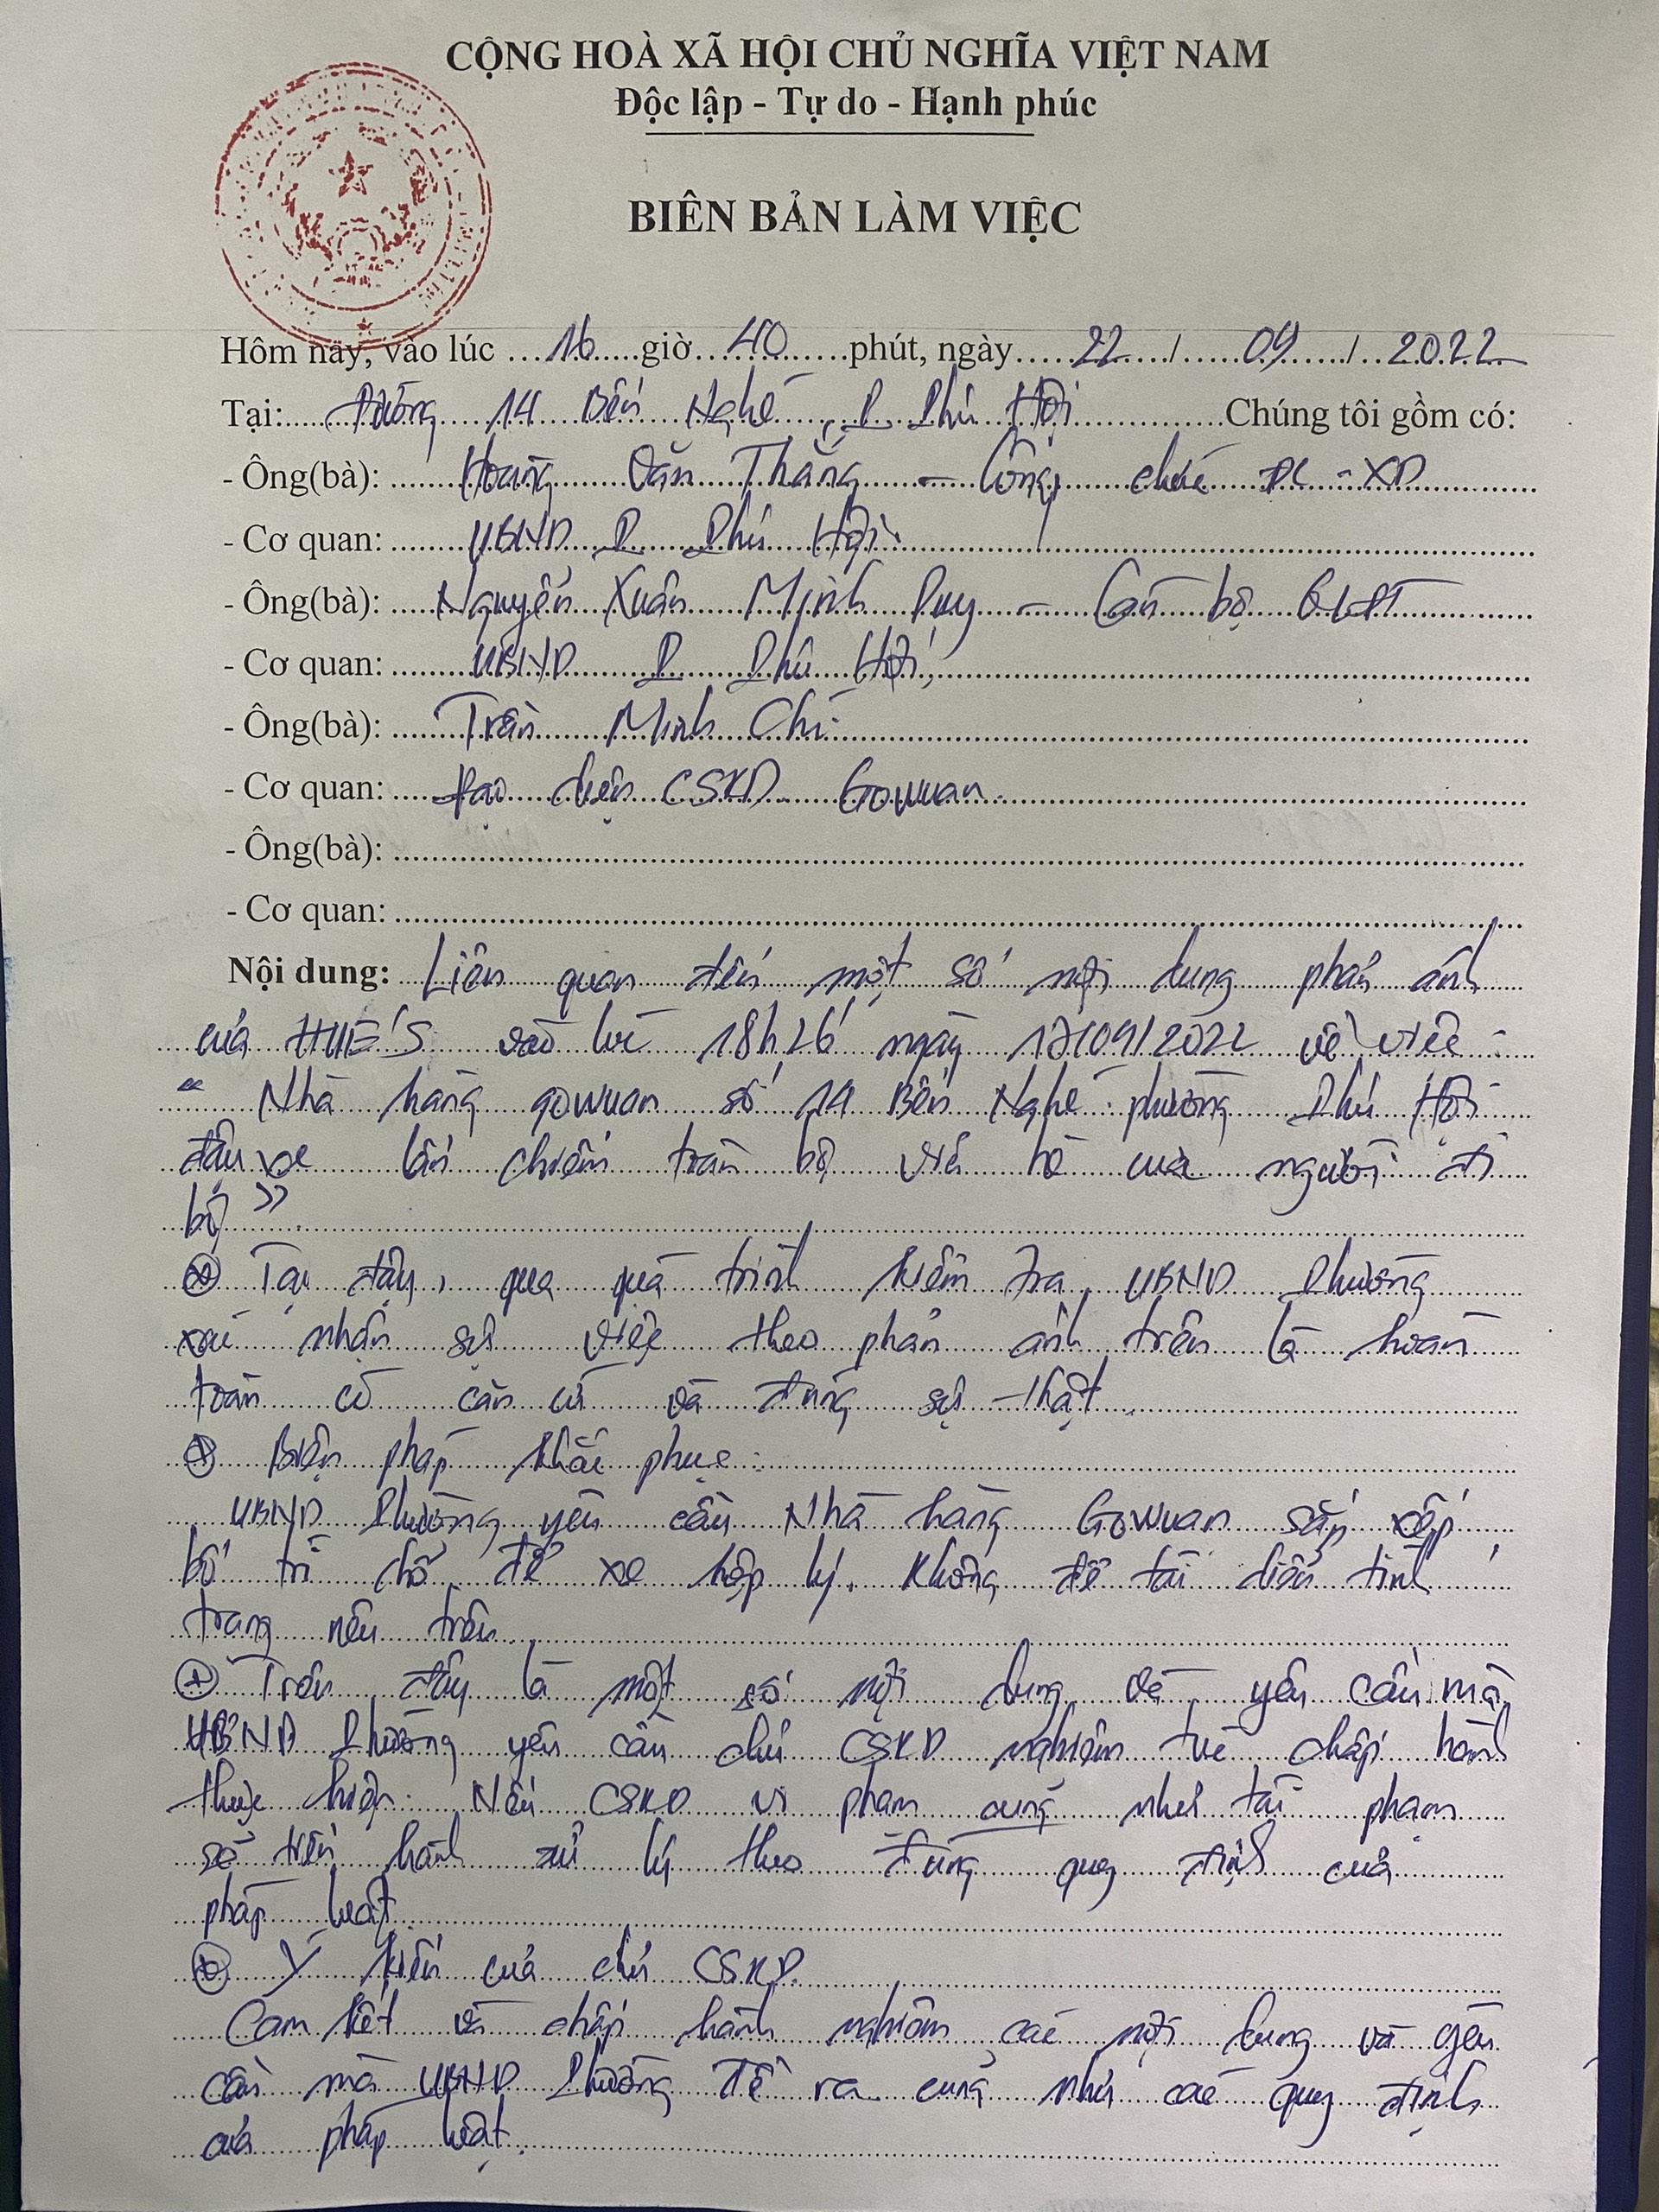 CỘNG HOÀ XÃ HỘI CHỦ NGHĨA VIỆT NAM
Độc lập - Tự do - Hạnh phúc
BIÊN BẢN LÀM VIỆC
Hôm nay, vào lúc 16 giờ 40 phút, ngày 22 / 09 / 2022
Tại: Đường 14 Bến Nghé, P Phú Hội Chúng tôi gồm có:
- Ông(bà): Hoàng Văn Thắng - Công chức ĐC - XD
- Cơ quan: UBND P Phú Hội
- Ông(bà): Nguyễn Xuân Minh Duy - Cán bộ QLĐT
- Cơ quan: UBND P Phú Hội
- Ông(bà): Trần Minh Chí
- Cơ quan: Đại diện CSKD Gowuan.
- Ông(bà):
- Cơ quan:
Nội dung: Liên quan đến một số nội dung phản ánh
của HUE'S vào lúc 18h26 ngày 17/09/2022 về việc:
" Nhà hàng gowuan số 14 Bến Nghé phường Phú Hội
đậu xe lấn chiếm toàn bộ vỉa hè của người đi
bộ "
Tại đây, qua quá trình kiểm tra UBND Phường
xác nhận sự việc theo phản ánh trên là hoàn
toàn có căn cứ và đúng sự thật.
Biện pháp khắc phục:
UBND Phường yêu cầu Nhà hàng Gowuan sắp xếp,
bố trí chỗ để xe hợp lý. Không để tái diễn tình
trạng nêu trên.
Trên đây là một số nội dung và yêu cầu mà
UBND Phường yêu cầu chủ CSKD nghiêm túc chấp hành
thực hiện. Nếu CSKD vi phạm cũng như tái phạm
sẽ tiến hành xử lý theo đúng quy định của
pháp luật.
Ý kiến của chủ CSKD.
Cam kết và chấp hành nghiêm các nội dung và yêu
cầu mà UBND Phường đề ra cũng như các quy định
của pháp luật.